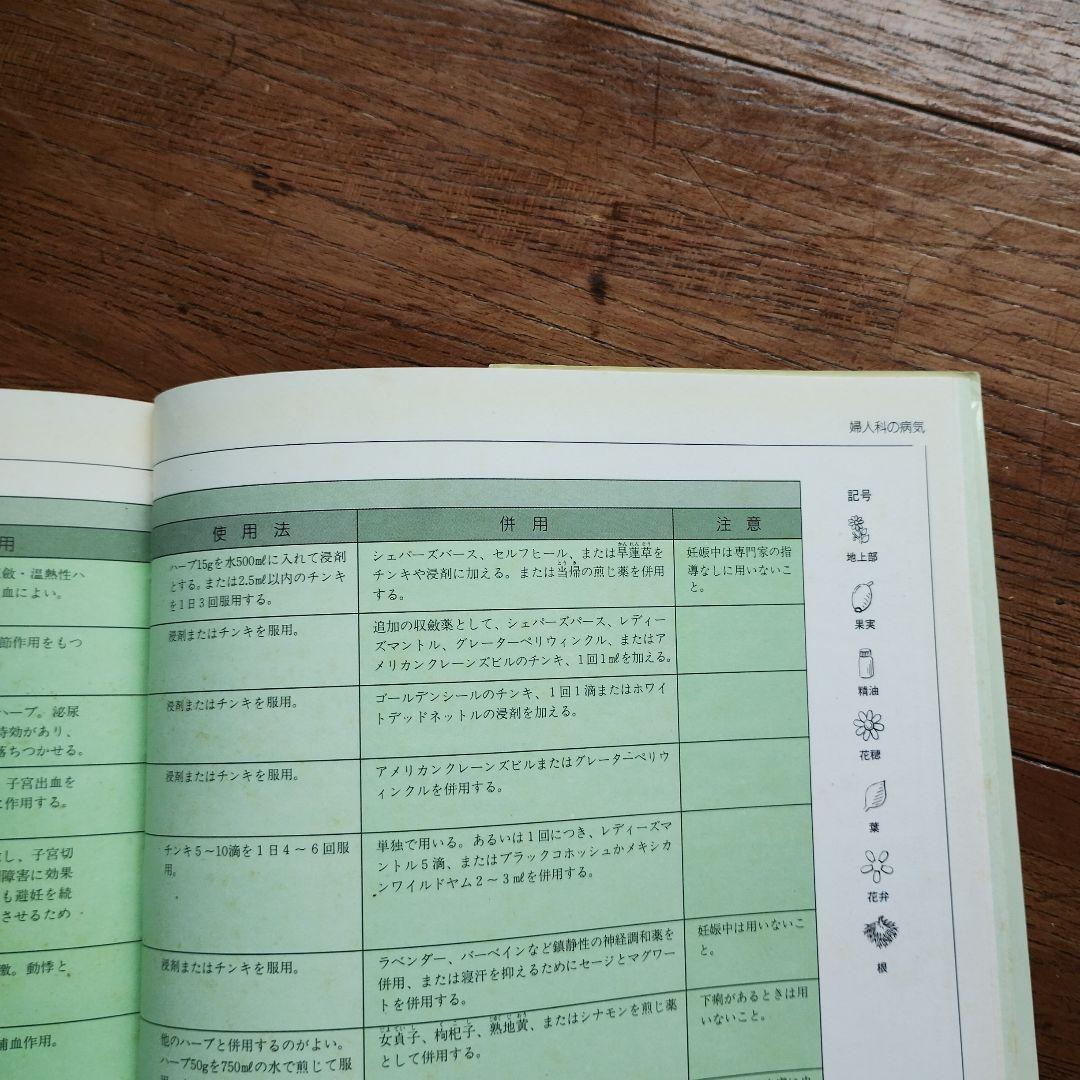 婦人科の病気
用
斂・温熱性ハ
血によい。
節作用をもつ
ハーブ。泌尿
効があり、
落ちつかせる。
子宮出血を
作用する。
し、子宮切
障害に効果
も避妊を続
させるため
激。動悸と
補血作用。
使用法
併用
注意
ハーブ15gを水500mlに入れて浸剤
とする。または2.5ml以内のチンキ
を1日3回服用する。
シェパーズパース、セルフヒール、または旱蓮草をかんれんそう
チンキや浸剤に加える。または当帰の煎じ薬を併用とうき
する。
妊娠中は専門家の指
導なしに用いないこ
と。
浸剤またはチンキを服用。
追加の収斂薬として、シェパーズパース、レディー
ズマントル、グレーターペリウィンクル、またはア
メリカンクレーンズビルのチンキ、1回1mlを加える。
浸剤またはチンキを服用。
ゴールデンシールのチンキ、1回1滴またはホワイ
トデッドネットルの浸剤を加える。
浸剤またはチンキを服用。
アメリカンクレーンズビルまたはグレーターペリウ
ィンクルを併用する。
チンキ5～10滴を1日4～6回服
用。
単独で用いる。あるいは1回につき、レディーズマ
ントル5滴、またはブラックコホッシュかメキシカ
ンワイルドヤム2～3mlを併用する。
浸剤またはチンキを服用。
ラベンダー、バーベインなど鎮静性の神経調和薬を
併用、または寝汗を抑えるためにセージとマグワー
トを併用する。
妊娠中は用いないこ
と。
他のハーブと併用するのがよい。
ハーブ50gを750mlの水で煎じて服
女貞子、枸杞子、熟地黄、またはシナモンを煎じ薬
として併用する。
下痢があるときは用
いないこと。
記号
地上部
果実
精油
花穂
葉
花弁
根